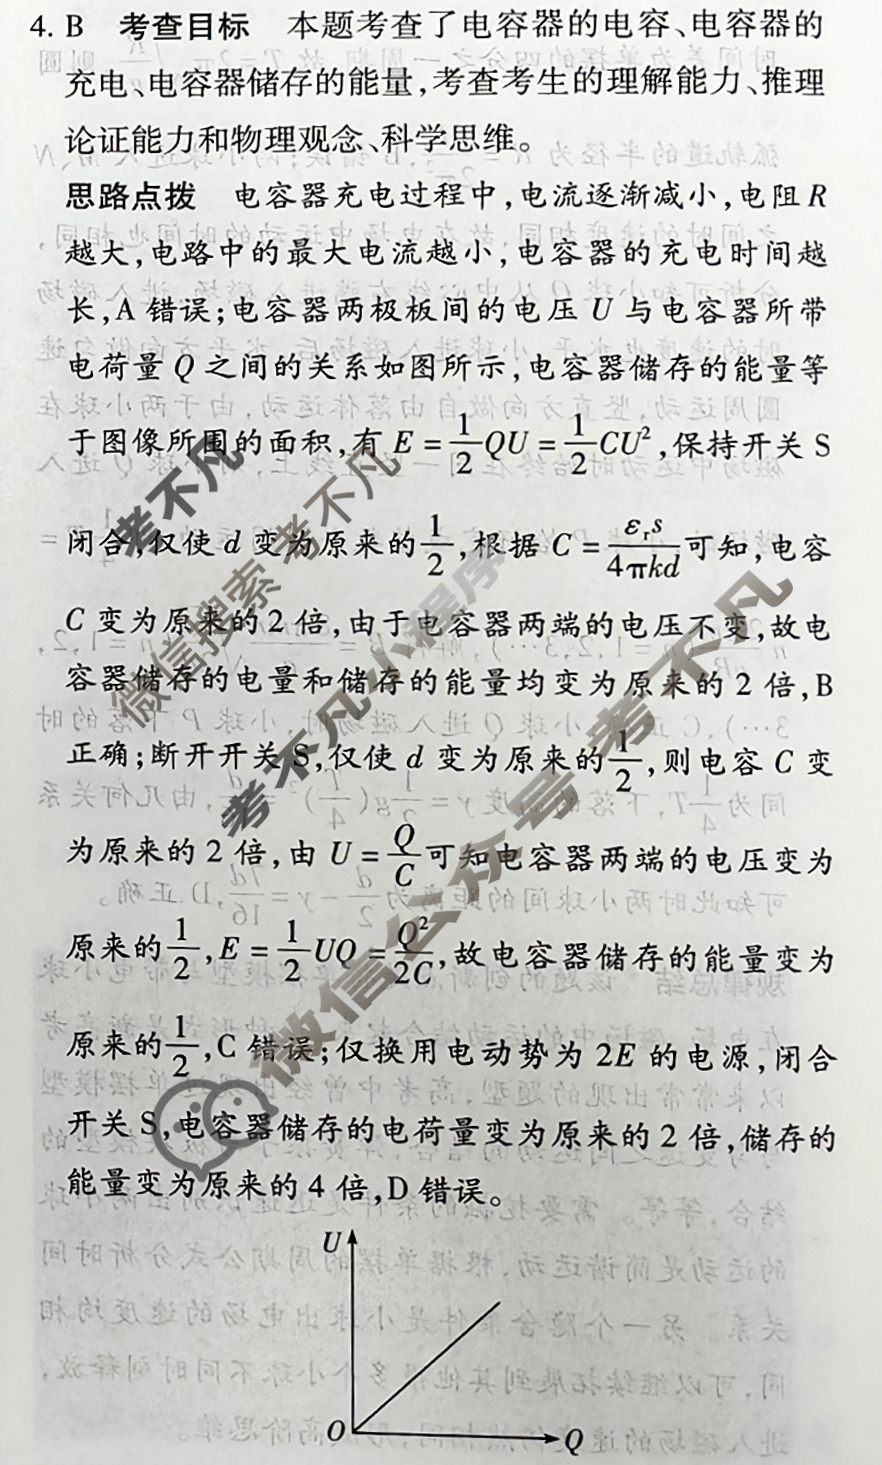 4. B 考查目标 本题考查了电容器的电容、电容器的
充电、电容器储存的能量,考查考生的理解能力、推理
论证能力和物理观念、科学思维。
思路点拨 电容器充电过程中,电流逐渐减小,电阻 R
越大,电路中的最大电流越小,电容器的充电时间越
长,A 错误;电容器两极板间的电压 U 与电容器所带
电荷量 Q 之间的关系如图所示,电容器储存的能量等
于图像所围的面积,有 E = 1/2 QU = 1/2 CU²,保持开关 S
闭合,仅使 d 变为原来的 1/2,根据 C = εᵣs/4πkd 可知,电容
C 变为原来的 2 倍,由于电容器两端的电压不变,故电
容器储存的电量和储存的能量均变为原来的 2 倍,B
正确;断开开关 S,仅使 d 变为原来的 1/2,则电容 C 变
为原来的 2 倍,由 U = Q/C 可知电容器两端的电压变为
原来的 1/2,E = 1/2 UQ = Q²/2C,故电容器储存的能量变为
原来的 1/2,C 错误;仅换用电动势为 2E 的电源,闭合
开关 S,电容器储存的电荷量变为原来的 2 倍,储存的
能量变为原来的 4 倍,D 错误。
U
O
Q
考不凡
微信搜索 考不凡
考不凡小程序
微信公众号 考不凡